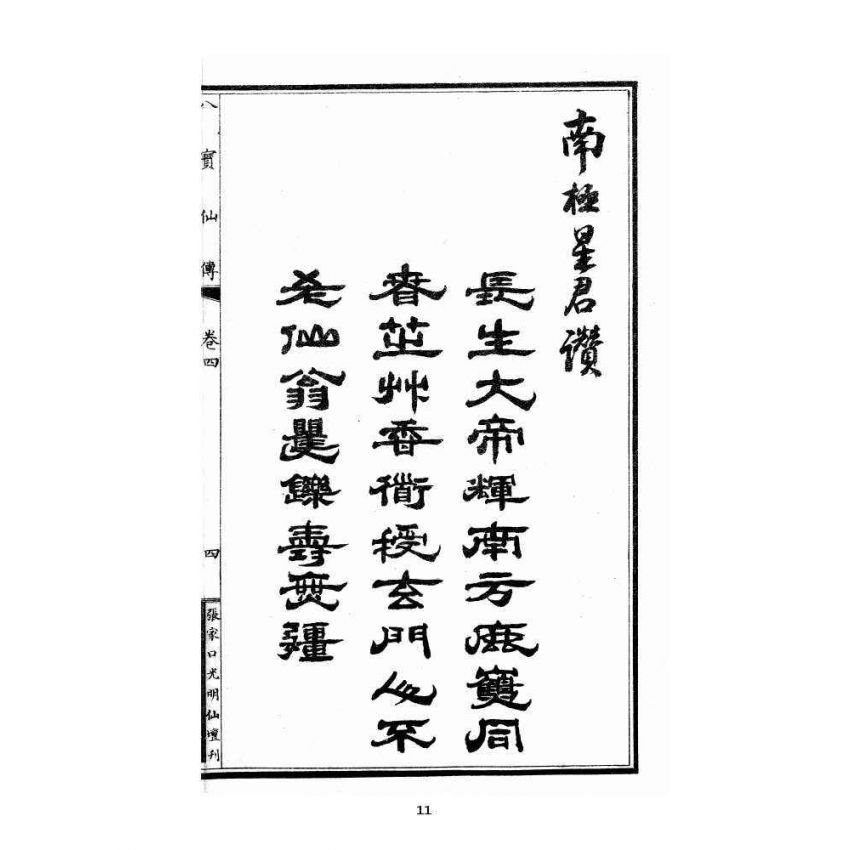 南極星君讚
長生大帝輝南方鹿同
春芝艸香衜授玄門心不
老仙翁矍鑠壽無疆
八寶仙傳 卷四 四 張家口光明仙壇刊
11